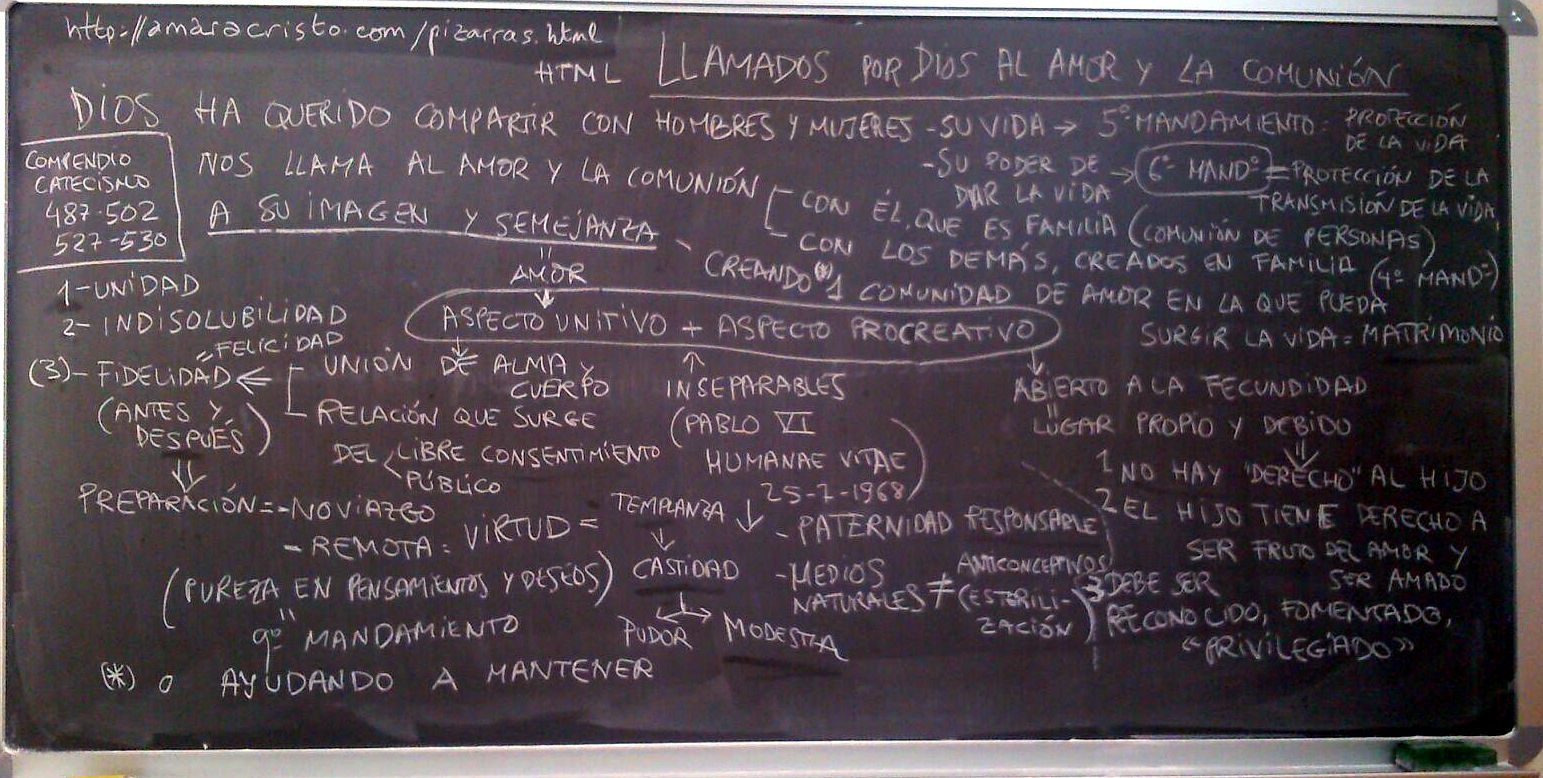 http://amaracristo.com/pizarras.html
HTML
LLAMADOS POR DIOS AL AMOR Y LA COMUNIÓN
DIOS HA QUERIDO COMPARTIR CON HOMBRES Y MUJERES - SU VIDA → 5º MANDAMIENTO: PROTECCIÓN
DE LA VIDA
- SU PODER DE
DAR LA VIDA → 6º MANDº = PROTECCIÓN DE LA
TRANSMISIÓN DE LA VIDA
COMPENDIO
CATECISMO
487-502
527-530
NOS LLAMA AL AMOR Y LA COMUNIÓN
CON ÉL, QUE ES FAMILIA (COMUNIÓN DE PERSONAS)
CON LOS DEMÁS, CREADOS EN FAMILIA (4º MANDº)
A SU IMAGEN Y SEMEJANZA
CREANDO(*) 1 COMUNIDAD DE AMOR EN LA QUE PUEDA
SURGIR LA VIDA = MATRIMONIO
=
AMOR
↓
ASPECTO UNITIVO + ASPECTO PROCREATIVO
1-UNIDAD
2-INDISOLUBILIDAD
= FELICIDAD
(3)- FIDELIDAD ⇐
(ANTES Y
DESPUÉS)
UNIÓN DE ALMA Y
CUERPO
RELACIÓN QUE SURGE
DEL LIBRE CONSENTIMIENTO
PÚBLICO
⇓
PREPARACIÓN = - NOVIAZGO
- REMOTA: VIRTUD =
(PUREZA EN PENSAMIENTOS Y DESEOS)
=
9º MANDAMIENTO
TEMPLANZA
↓
CASTIDAD
PUDOR MODESTIA
↑
INSEPARABLES
(PABLO VI
HUMANAE VITAE
25-7-1968)
↓
- PATERNIDAD RESPONSABLE
- MEDIOS
NATURALES ≠ ANTICONCEPTIVOS
(ESTERILI-
ZACIÓN)
↓
ABIERTO A LA FECUNDIDAD
=
LUGAR PROPIO Y DEBIDO
⇓
1 NO HAY "DERECHO" AL HIJO
2 EL HIJO TIENE DERECHO A
SER FRUTO DEL AMOR Y
SER AMADO
3 DEBE SER
RECONOCIDO, FOMENTADO,
«PRIVILEGIADO»
(*) O AYUDANDO A MANTENER